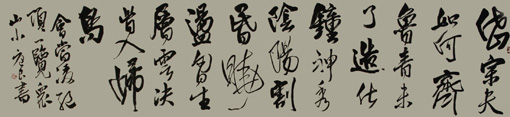 岱宗夫
如何齊
魯青未
了造化
鍾神秀
陰陽割
昏曉
盪胸生
層雲決
眥入歸
鳥
會當凌絕
頂一覽眾
山小 書